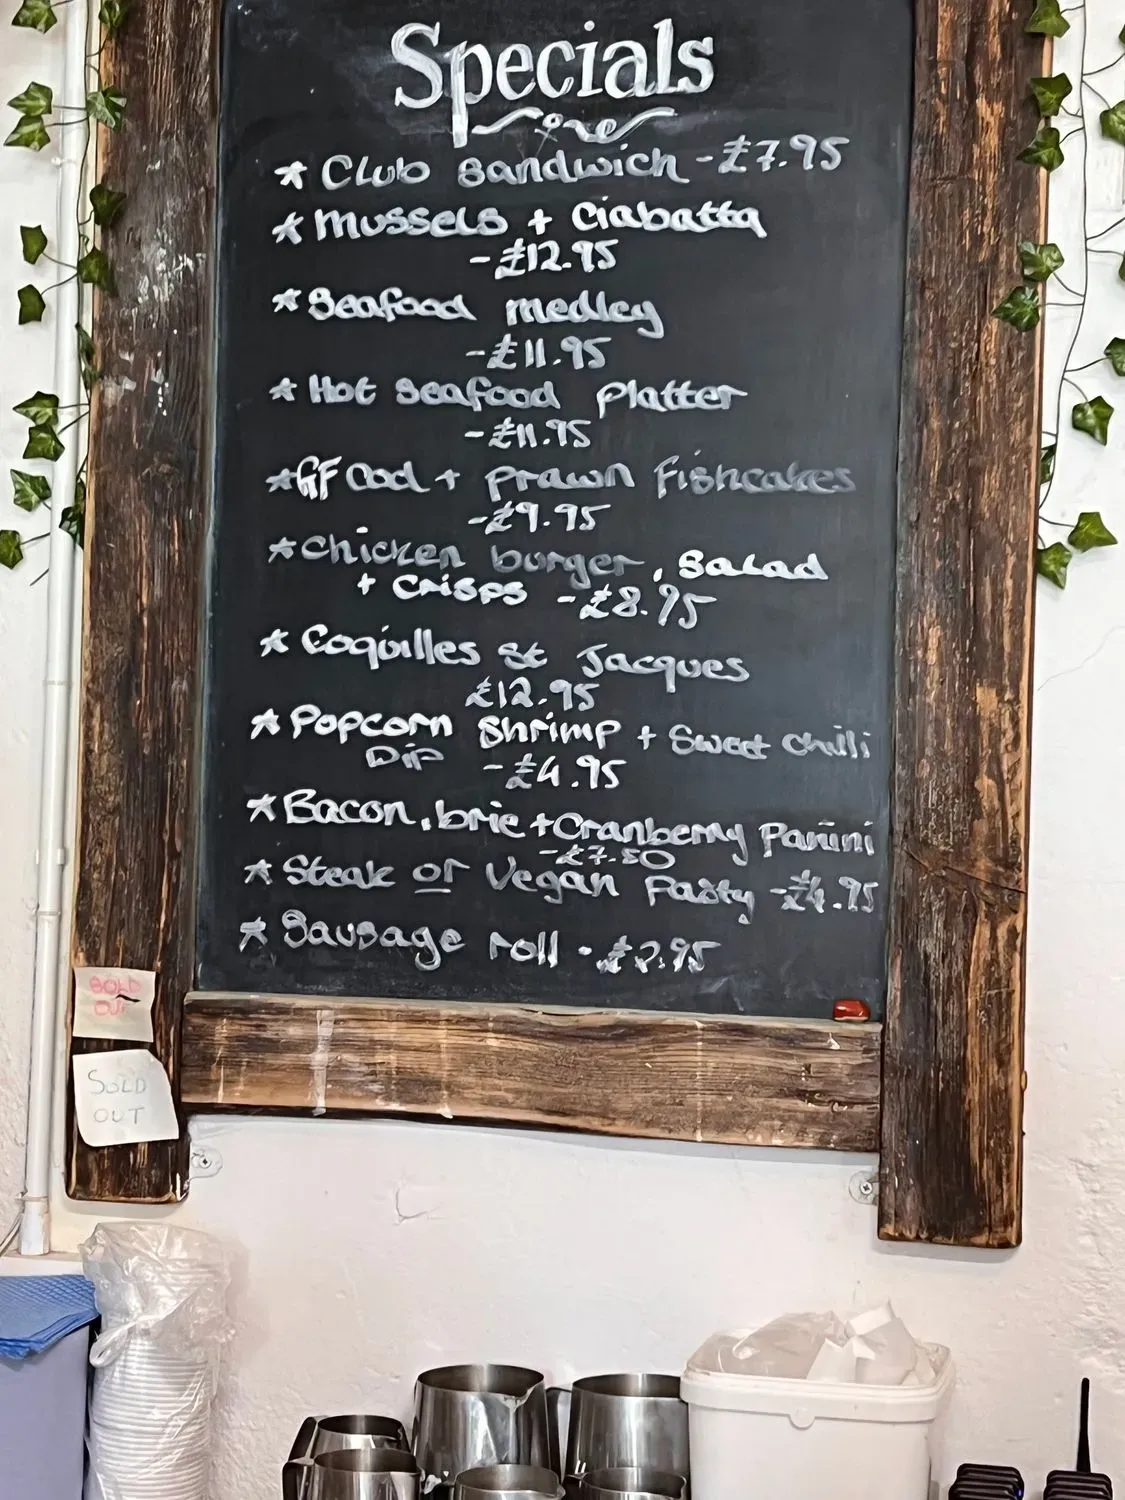 Specials
* Club sandwich - £7.95
* Mussels + Ciabatta
- £12.95
* Seafood medley
- £11.95
* Hot Seafood Platter
- £11.95
* GF Cod + prawn Fishcakes
- £9.95
* Chicken burger, Salad
+ Crisps - £8.95
* Coquilles St Jacques
£12.95
* Popcorn Shrimp + Sweet Chilli
Dip - £4.95
* Bacon, brie + Cranberry Panini
- £7.50
* Steak or Vegan Pasty - £4.95
* Sausage roll - £2.95
SOLD
OUT
SOLD
OUT